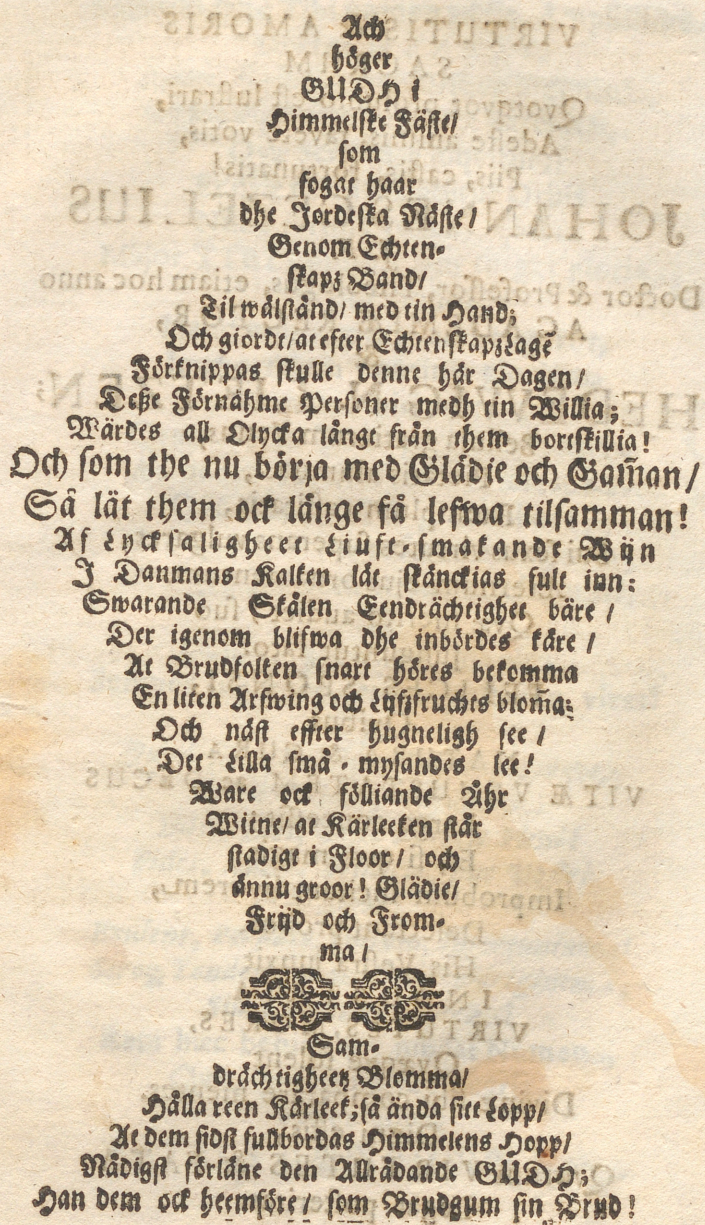 Ach
höger
GUDH i
Himmelske Fäste/
som
fogat haar
dhe Jordeska Näste/
Genom Echten-
skapz Band/
Til wälstånd/ med tin Hand;
Och giordt/at efter Echtenskapzlagē
Förknippas skulle denne här Dagen/
Deße Förnähme Personer medh tin Willia;
Wärdes all Olycka långt från them bortskillia!
Och som the nu börja med Glädie och Gam̄an/
Så låt them ock länge få lefwa tilsamman!
Af Lycksaligheet Liuft-smakande Wijn
J Danmans Kalken låt skänckias fult inn:
Swarande Skålen Eendrächtighet bäre/
Der igenom blifwa dhe inbördes käre/
At Brudfolken snart höres bekomma
En liten Arfwing och Lijfzfruchts blom̄a;
Och näst effter hugneligh see/
Det Lilla små-mysandes lee!
Ware ock fölliande Åhr
Witne/ at Kärleeken står
stadigt i Floor/ och
ännu groor! Glädie/
Frijd och From-
ma/
Sam-
drächtigheetz Blomma/
Hålla reen Kärleek; så ända sitt Lopp/
At dem sidst fullbordas Himmelens Hopp/
Nådigst förläne den Allrådande GUDH;
Han dem ock heemföre/ som Brudgum sin Brud!